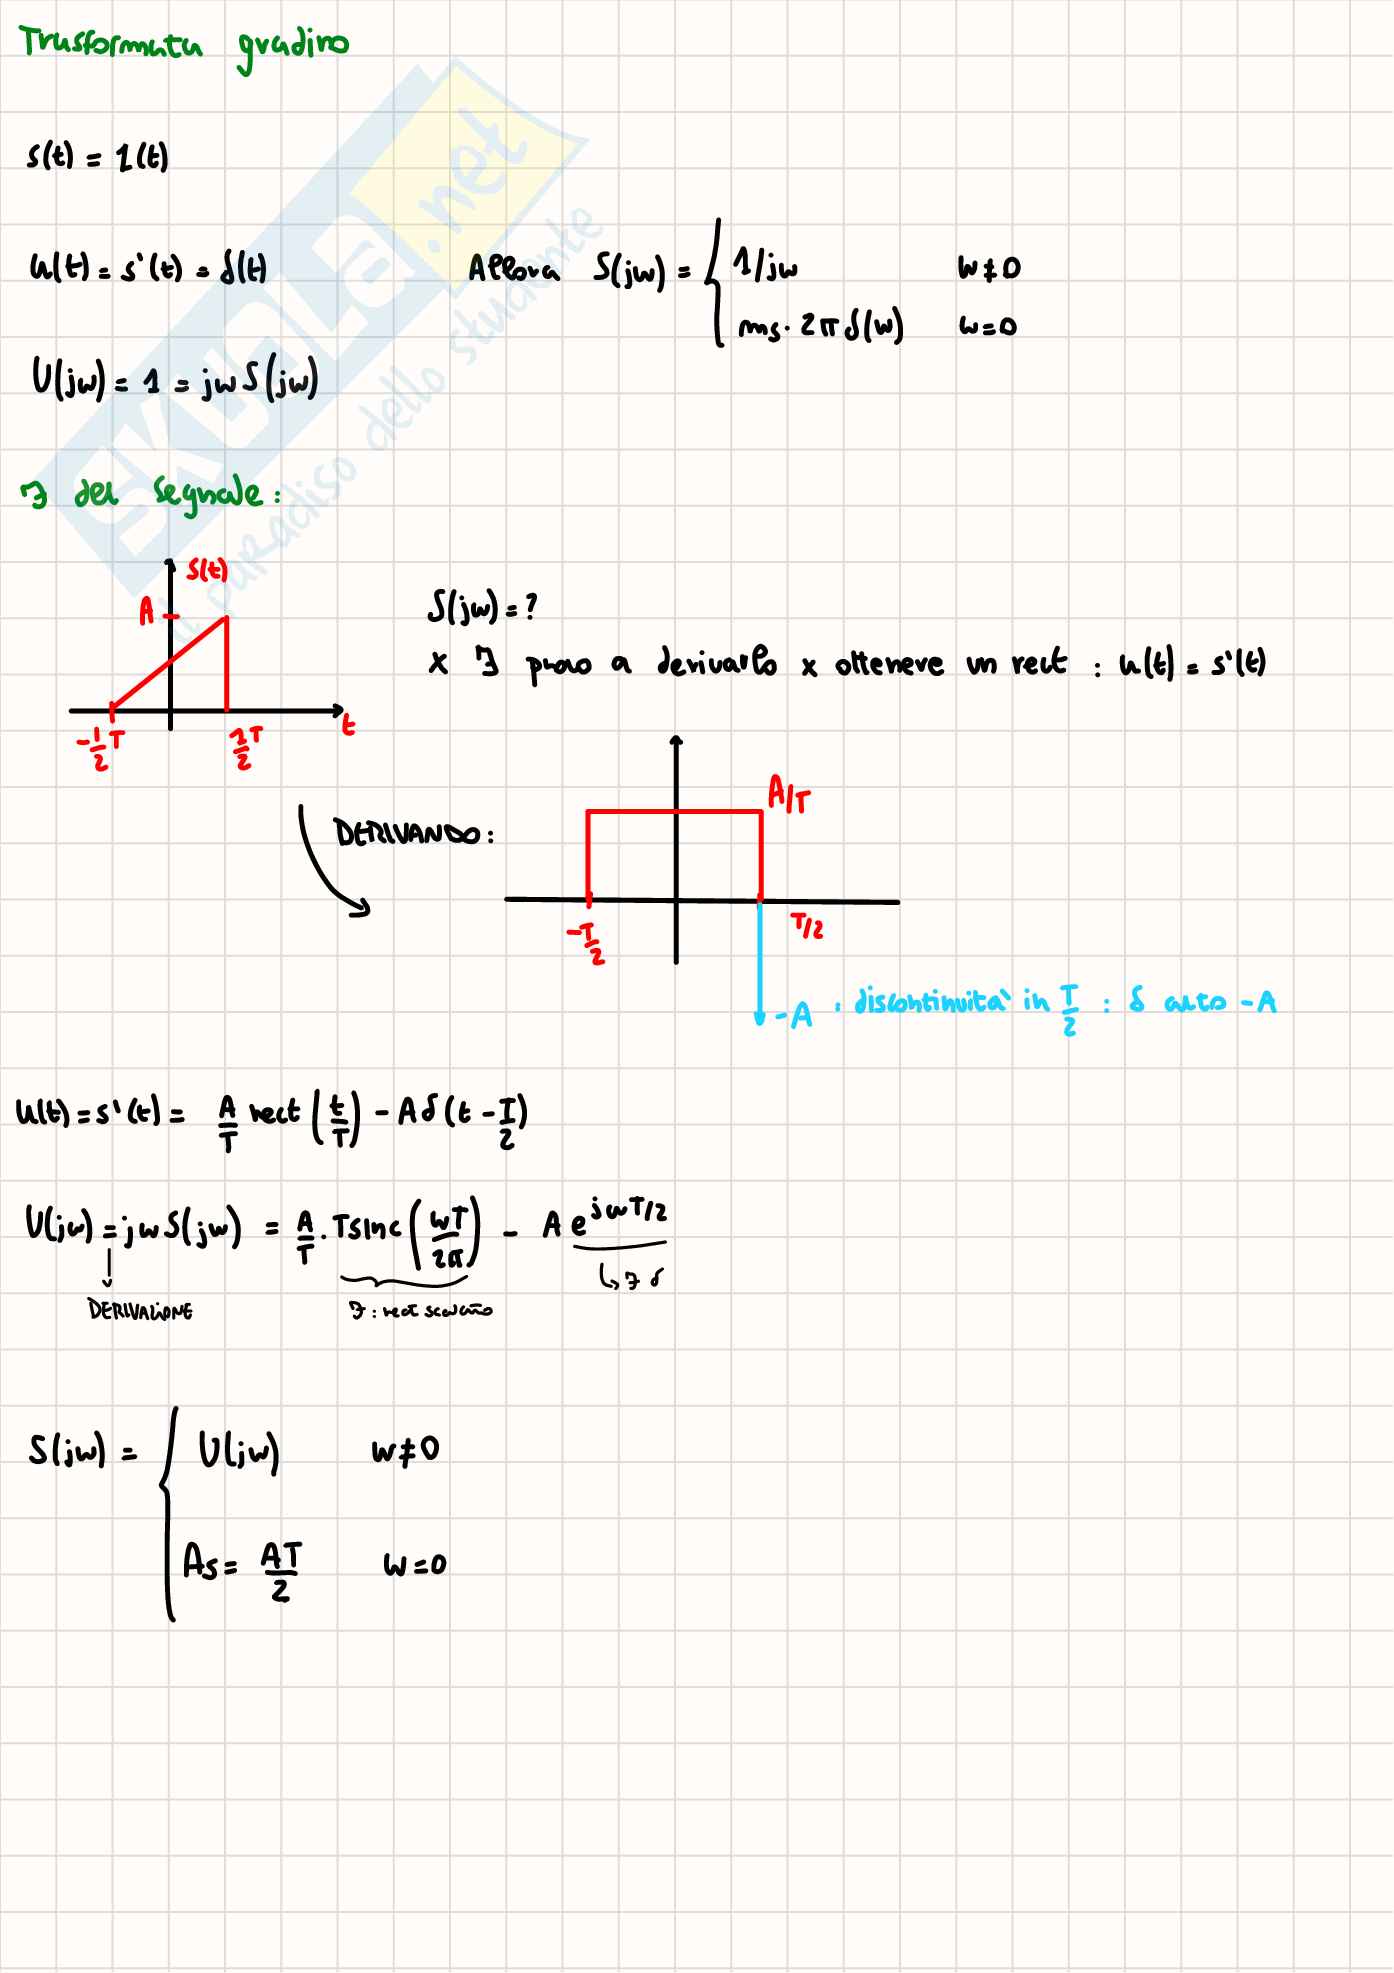 Trasformata gradino
s(t) = 1(t)
u(t) = s'(t) = δ(t)
Allora S(jω) = { 1/jω ω≠0
ms · 2π δ(ω) ω=0
U(jω) = 1 = jω S(jω)
F del segnale :
s(t)
A
-1/2 T
1/2 T
t
S(jω) = ?
x F provo a derivarlo x ottenere un rect : u(t) = s'(t)
DERIVANDO :
A/T
-T/2
T/2
-A : discontinuità in T/2 : δ alto -A
u(t) = s'(t) = A/T rect (t/T) - A δ (t - T/2)
U(jω) = jω S(jω) = A/T · T sinc (ωT/2π) - A e^jωT/2
DERIVAZIONE
F : rect scalato
↳ F δ
S(jω) = { U(jω) ω≠0
As = AT/2 ω=0
SKUOLA.net
il paradiso dello studente